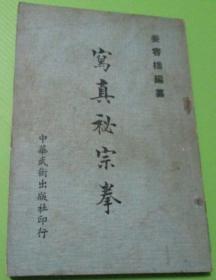 姜容樵編纂
寫真祕宗拳
中華武術出版社印行